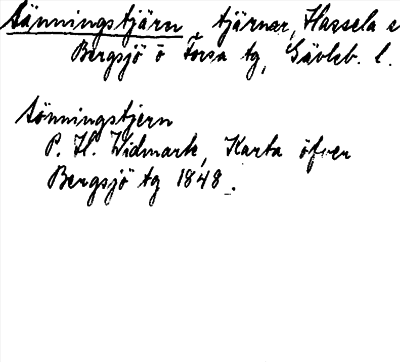 Sänningstjärn tjärnar, Hassela s
Bergsjö o Torsa tg, Gävleb. l.
Sönningstjern
P. H. Widmark, Karta öfver
Bergsjö tg 1848.